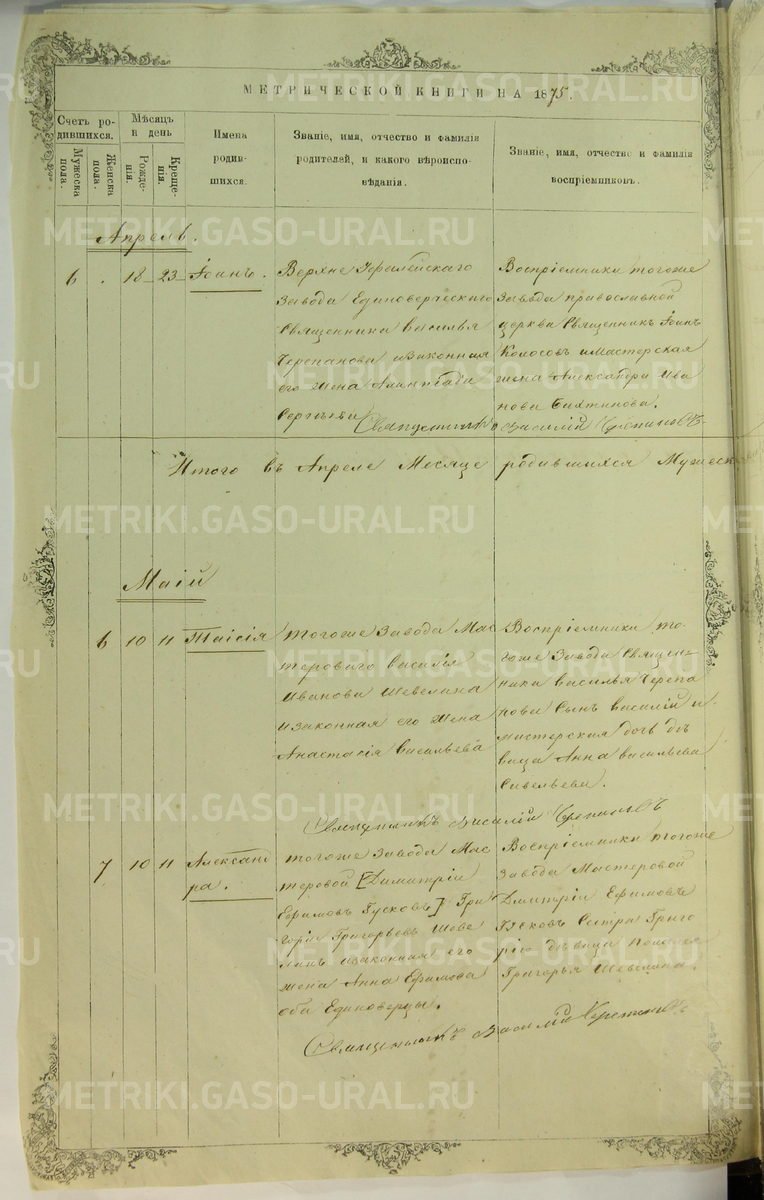 МЕТРИЧЕСКОЙ КНИГИ НА 1875.
Счетъ ро-
дившихся.
Мужеска
пола.
Женска
пола.
Мѣсяцъ
и день
Рожде-
нія.
Креще-
нія.
Имена
родив-
шихся.
Званіе, имя, отчество и фамилія
родителей, и какого вѣроиспо-
вѣданія.
Званіе, имя, отчество и фамилія
воспріемниковъ.
Апрель.
6 18 23 Іоанъ.
Верхне Уфалейскаго
завода Единоверческаго
Священника Василья
Черепанова изаконная
его жена Алимпіади
Сергѣева
Воспріемники тогоже
Завода православной
церкви Священник Іоанъ
Колосовъ имастерская
жена Александра Ива
нова
Священникъ Василій Черепановъ
Итого въ Апреле Месяце родившихся Мужеск
Маій
6 10 11 Таисія
тогоже Завода Мас
тероваго Василія
Иванова Шевелина
изаконная его жена
Анастасія Васильева
Воспріемники то-
гоже Завода Священ-
ника Василья Черепа
нова Сынъ Василій и
мастерская дочь дѣ
вица Анна Васильева
Савельева.
Священникъ Василій Черепановъ
7 10 11 Александ
ра.
тогоже Завода Мас
теровой [Димитріи
Ефимовъ Гусковъ] Гри
горіи Григорьевъ Шеве
линъ изаконная его
жена Анна Ефимова
оба Единоверцы.
Воспріемники тогоже
Завода Мастеровой
Дмитріи Ефимовъ
Гусковъ Сестра Григо
рію дѣвица
Григорья Шевелина.
Священникъ Василій Черепановъ
METRIKI.GASO-URAL.RU